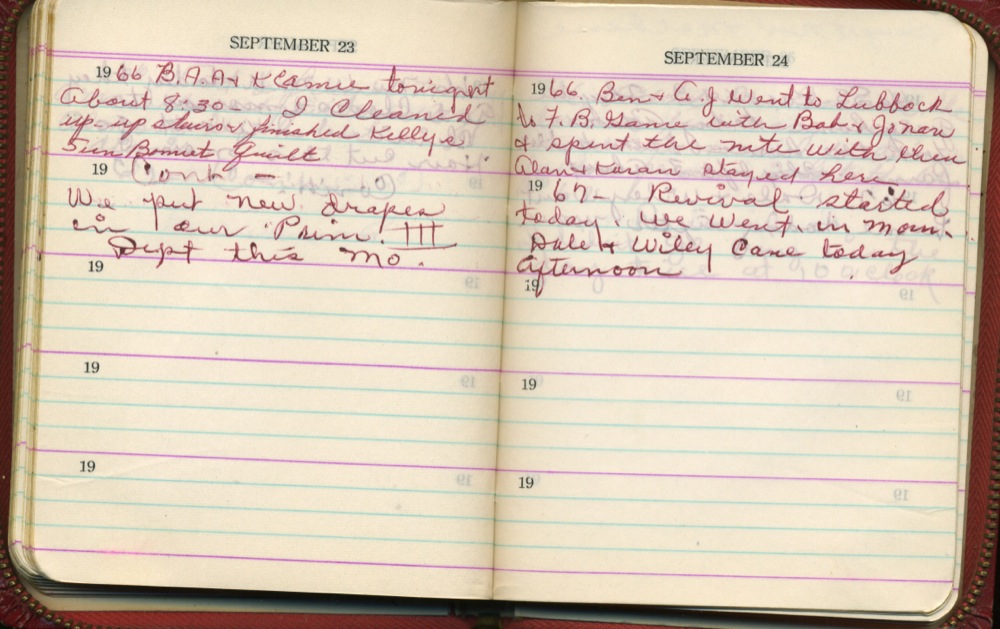 SEPTEMBER 23
1966 B. A. A + K Came tonight
about 8:30 I Cleaned
up up stairs + finished Kellye
Sun Bonnet Quilt
19 Cont -
We put new drapes
in our Prim. III
Dept this mo.
19
19
19
SEPTEMBER 24
1966. Ben + A. J Went to Lubbock
to F. B. Game with Bob + Jonan
+ spent the nite With them
Alan + Karan stayed here
19 67- Revival started
today. We Went in morn.
Dale + Wiley Came today
afternoon
19
19
19